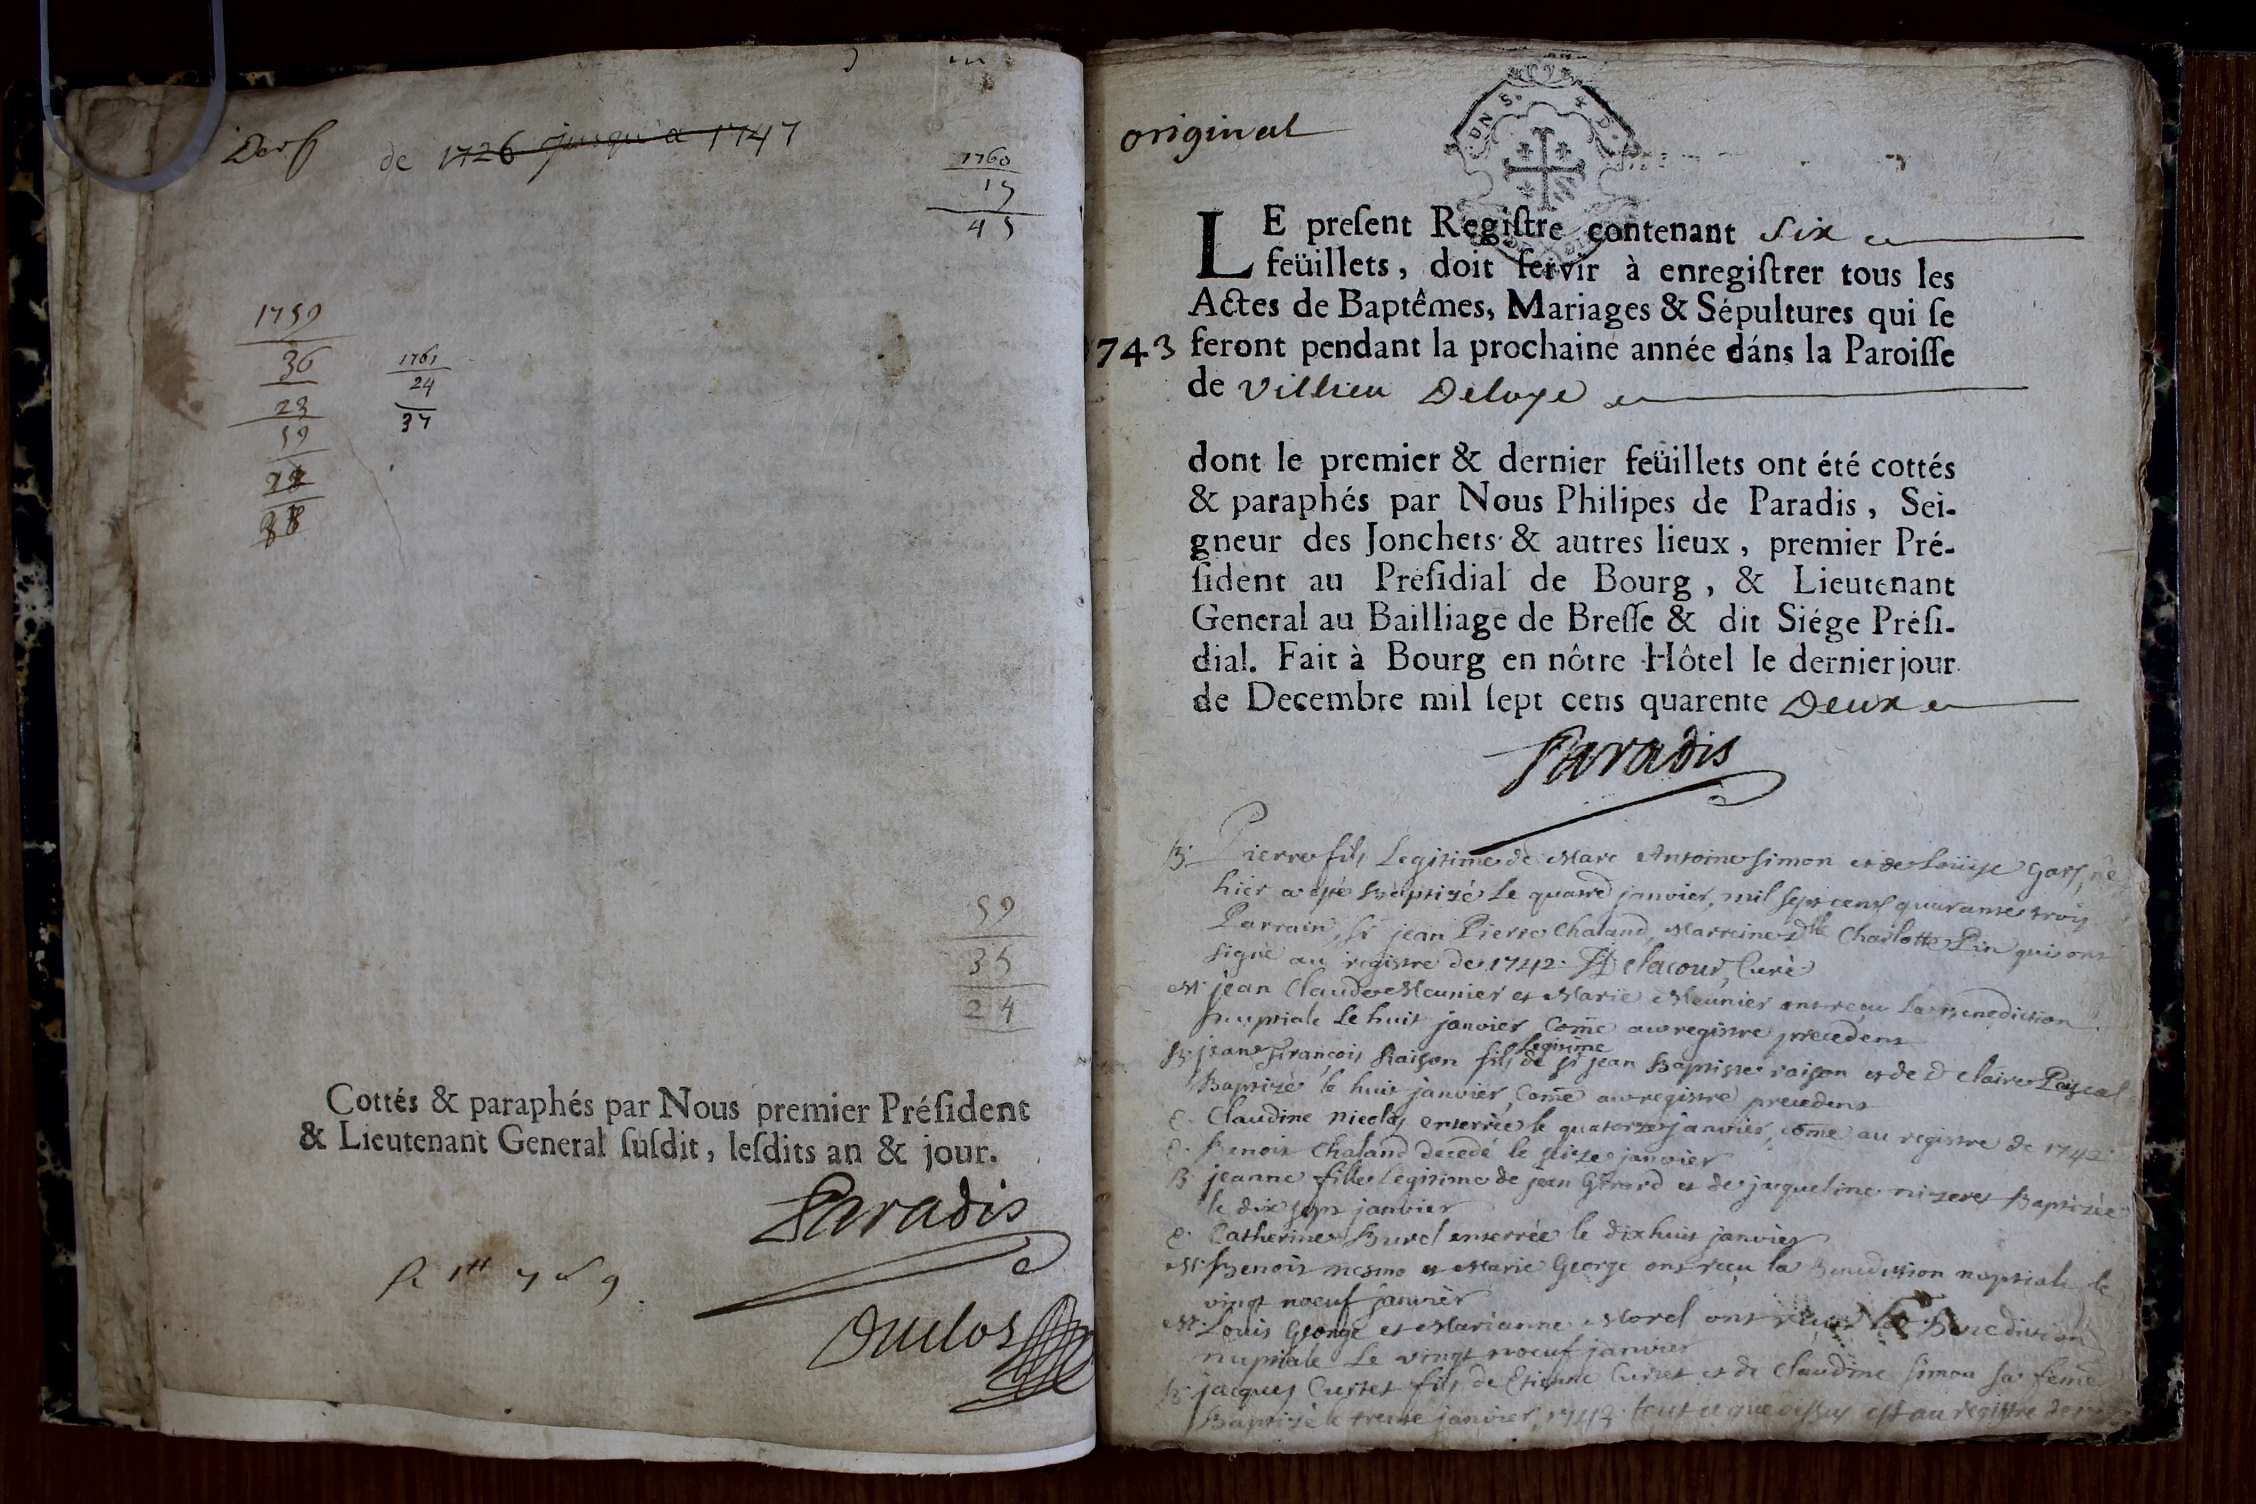 de 1726 jusqu'a 1747
1760
15
45
1759
36
23
59
1761
24
37
59
35
24
Cottés & paraphés par Nous premier Préſident
& Lieutenant General ſuſdit, leſdits an & jour.
Paradis
Duclos
original
LE preſent Regiſtre contenant Six
feüillets, doit ſervir à enregiſtrer tous les
Actes de Baptêmes, Mariages & Sépultures qui ſe
1743 feront pendant la prochaine année dáns la Paroiſſe
de Villieu Deloye
dont le premier & dernier feüillets ont été cottés
& paraphés par Nous Philipes de Paradis, Sei-
gneur des Jonchets & autres lieux, premier Pré-
ſident au Préſidial de Bourg, & Lieutenant
General au Bailliage de Breſſe & dit Siége Préſi-
dial. Fait à Bourg en nôtre Hôtel le dernier jour
de Decembre mil ſept cens quarente Deux
Paradis
B. Pierre fils Legitime de Marc Antoine Simon et de Loüise né
hier a esté Baptizé Le quatre janvier, mil sept cens quarante trois
Parrain, Sr jean Pierre Chaland, Marreine Dlle Charlotte Pin qui ont
signé au registre de 1742. Delacour, Curé
M. jean Claude Meunier et Marie Meunier ont reçu La Benediction
nuptiale Le huit janvier Come au registre precedent
B. jean François Raison fils Legitime de Sr jean Baptiste raison et de D Claire Pascal
Baptizé le huit janvier, Come au registre precedent
E. Claudine Nicolas enterrée le quatorze janvier, come au registre de 1742
E. Benoit Chaland decedé le seize janvier
B. jeanne fille Legitime de jean Girard et de jacqueline Baptizée
le dix sept janvier
E. Catherine Burel enterrée le dixhuit janvier
M. Benoit et Marie George ont reçu la Benediction nuptiale le
vingt noeuf janvier
M. Louis George et Marianne Morel ont reçu La Benediction
nuptiale Le vingt noeuf janvier
B. jacques Curtet fils de Etienne Curtet et de Claudine Simon sa feme
Baptizé le trente janvier, 1743. tout ce que dessus est au registre de